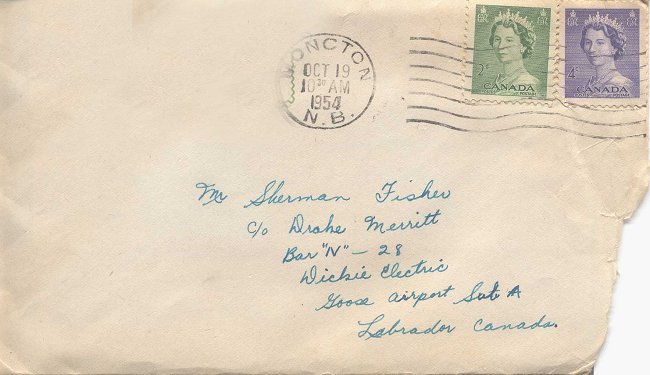 MONCTON
OCT 19
10 30 AM
1954
N.B.
2¢
CANADA
POSTES POSTAGE
4¢
CANADA
POSTES POSTAGE
Mr Sherman Fisher
c/o Drake Merritt
Bar "N" - 28
Dickie Electric
Goose airport Sub A
Labrador Canada.